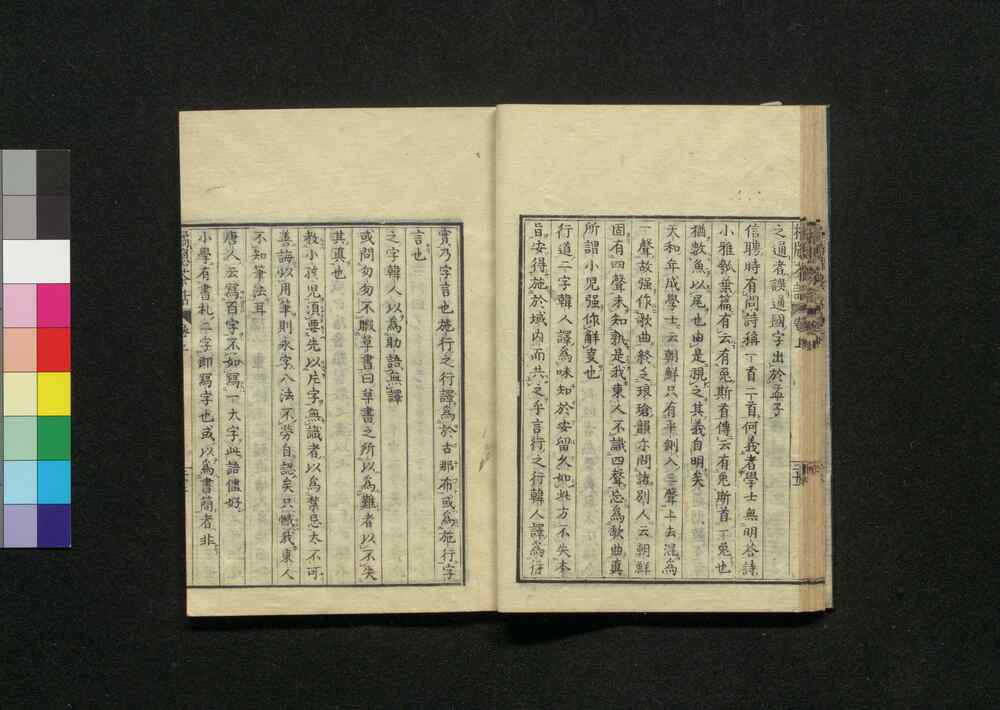 之通者誤過國字出於孟子
信聘時有問詩稱一首二首何義者學士無明答詩
小雅瓠葉篇有云有兔斯首傳云有兔斯首一兔也
猶數魚以尾也由是視之其義自明矣
天和年成學士云朝鮮只有平側入三聲上去混爲
一聲故强作歌曲終乏琅瑲韻亦問諸別人云朝鮮
固有四聲未知孰是我東人不識四聲忘爲歌曲眞
所謂小児强作解夏也
行道二字韓人譯爲味知於安留久如此方不失本
旨安得施於域内而共之乎言行之行韓人譯爲行
實乃字言也施行之行譯爲於古那布或爲施行字
言也
之字韓人以爲助語無譯
或問匆匆不暇草書曰草書之所以爲難者以不失
其眞也
教小孩児須要先以片字無識者以爲禁忌太不可
善誨以用筆則永字八法不勞自認矣只慨我東人
不知筆法耳
唐人云寫百字不如寫一大字此語儘好
小學有書札二字卽寫字也或以爲書簡者非